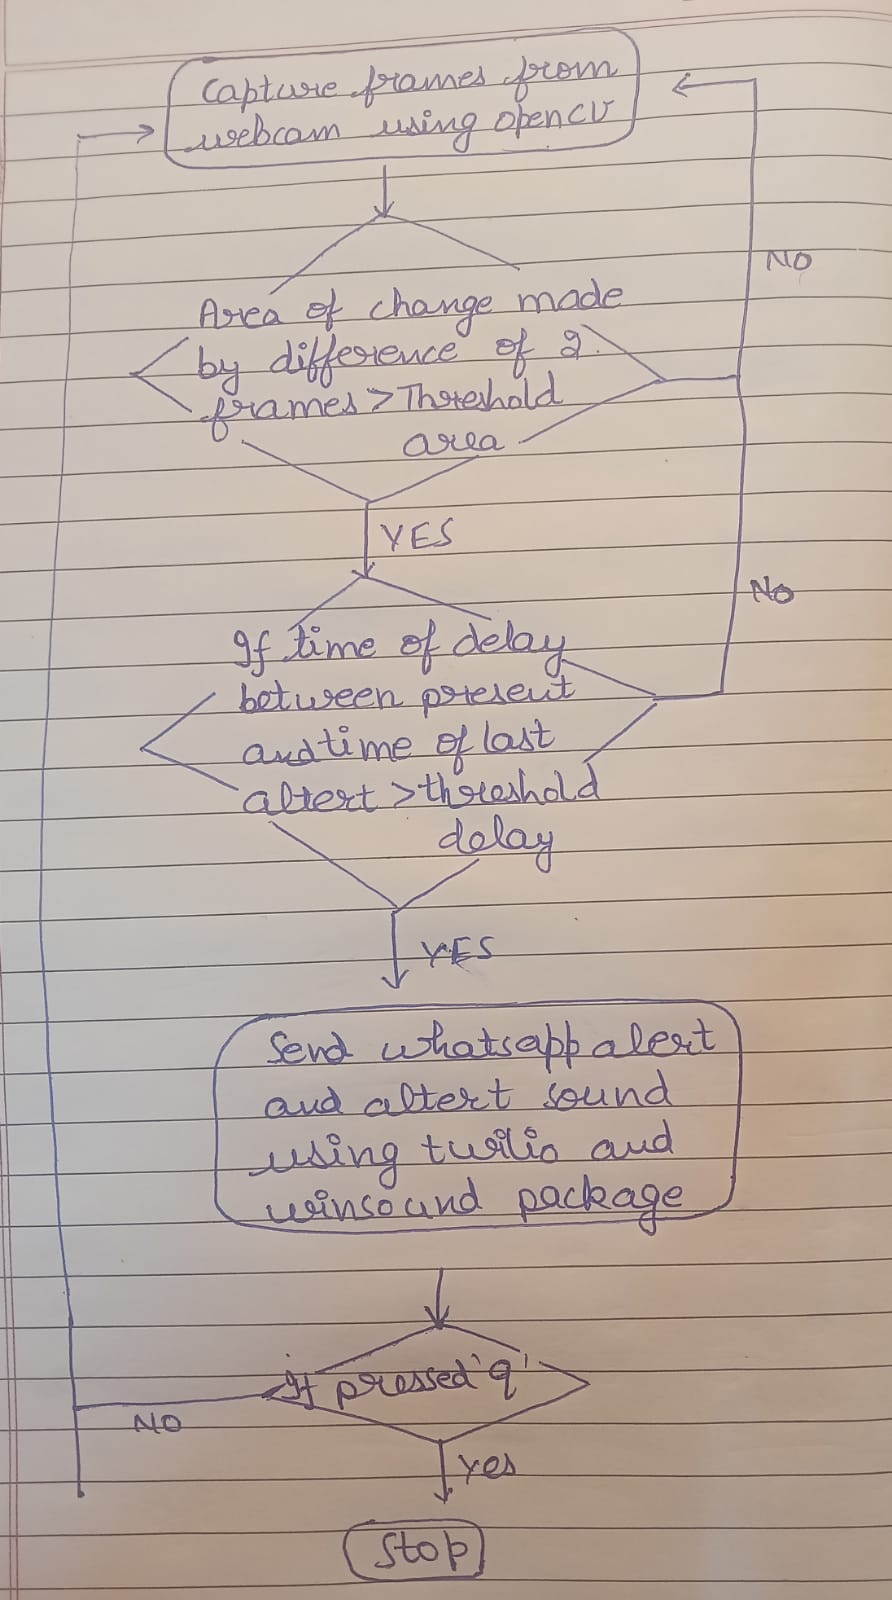 Capture frames from
webcam using opencv
NO
Area of change made
by difference of 2
frames > Threshold
area
YES
NO
If time of delay
between present
and time of last
altert > threshold
delay
YES
Send whatsapp alert
and altert sound
using twilio and
winsound package
If pressed 'q'
NO
Yes
Stop